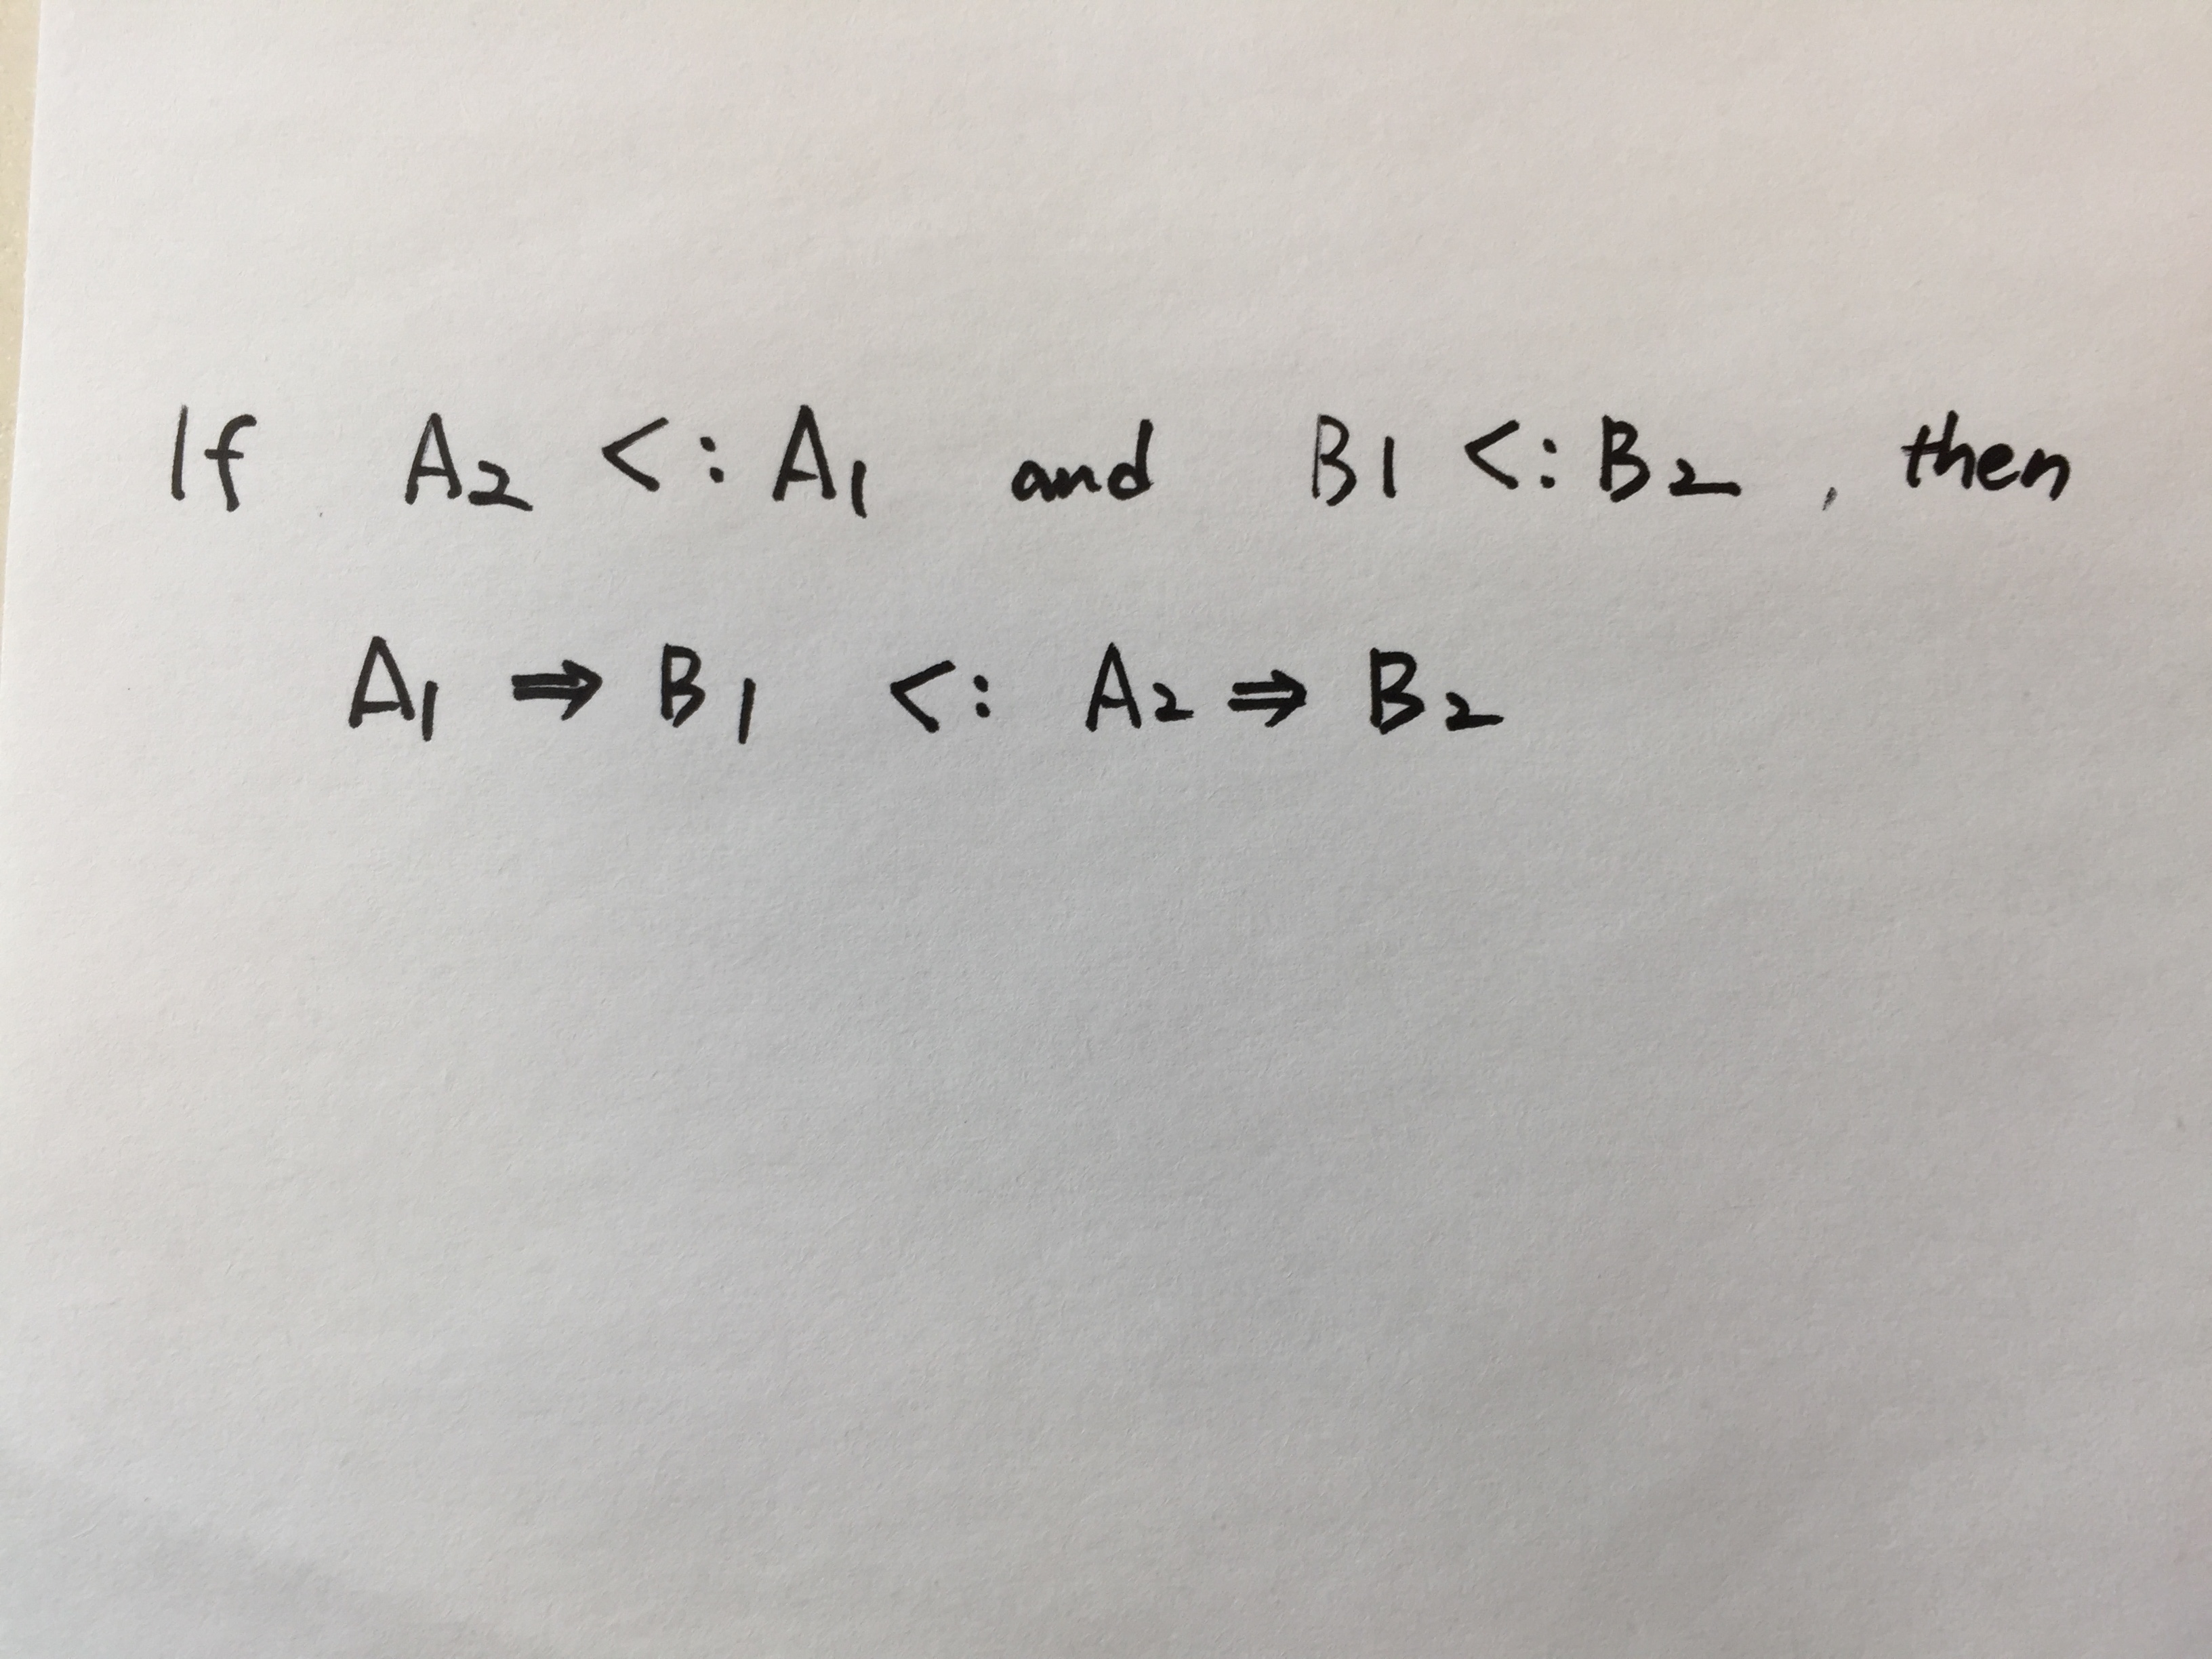 If A₂ <: A₁ and B1 <: B₂, then
A₁ ⇒ B₁ <: A₂ ⇒ B₂